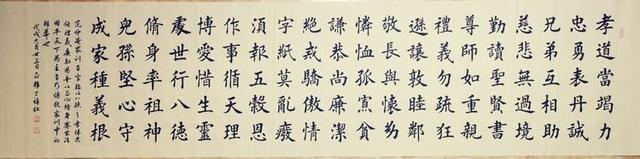 孝道當竭力
忠勇表丹誠
兄弟互相助
慈悲無過境
勤讀聖賢書
尊師如重親
禮義勿疏狂
遜讓敦睦鄰
敬長與懷幼
憐恤孤寡貧
謙恭尚廉潔
絕戒驕傲情
字紙莫亂廢
須報五穀恩
作事循天理
博愛惜生靈
處世行八德
脩身率祖神
兒孫堅心守
成家種義根
范仲淹家訓百字
戊戌六月廿三日